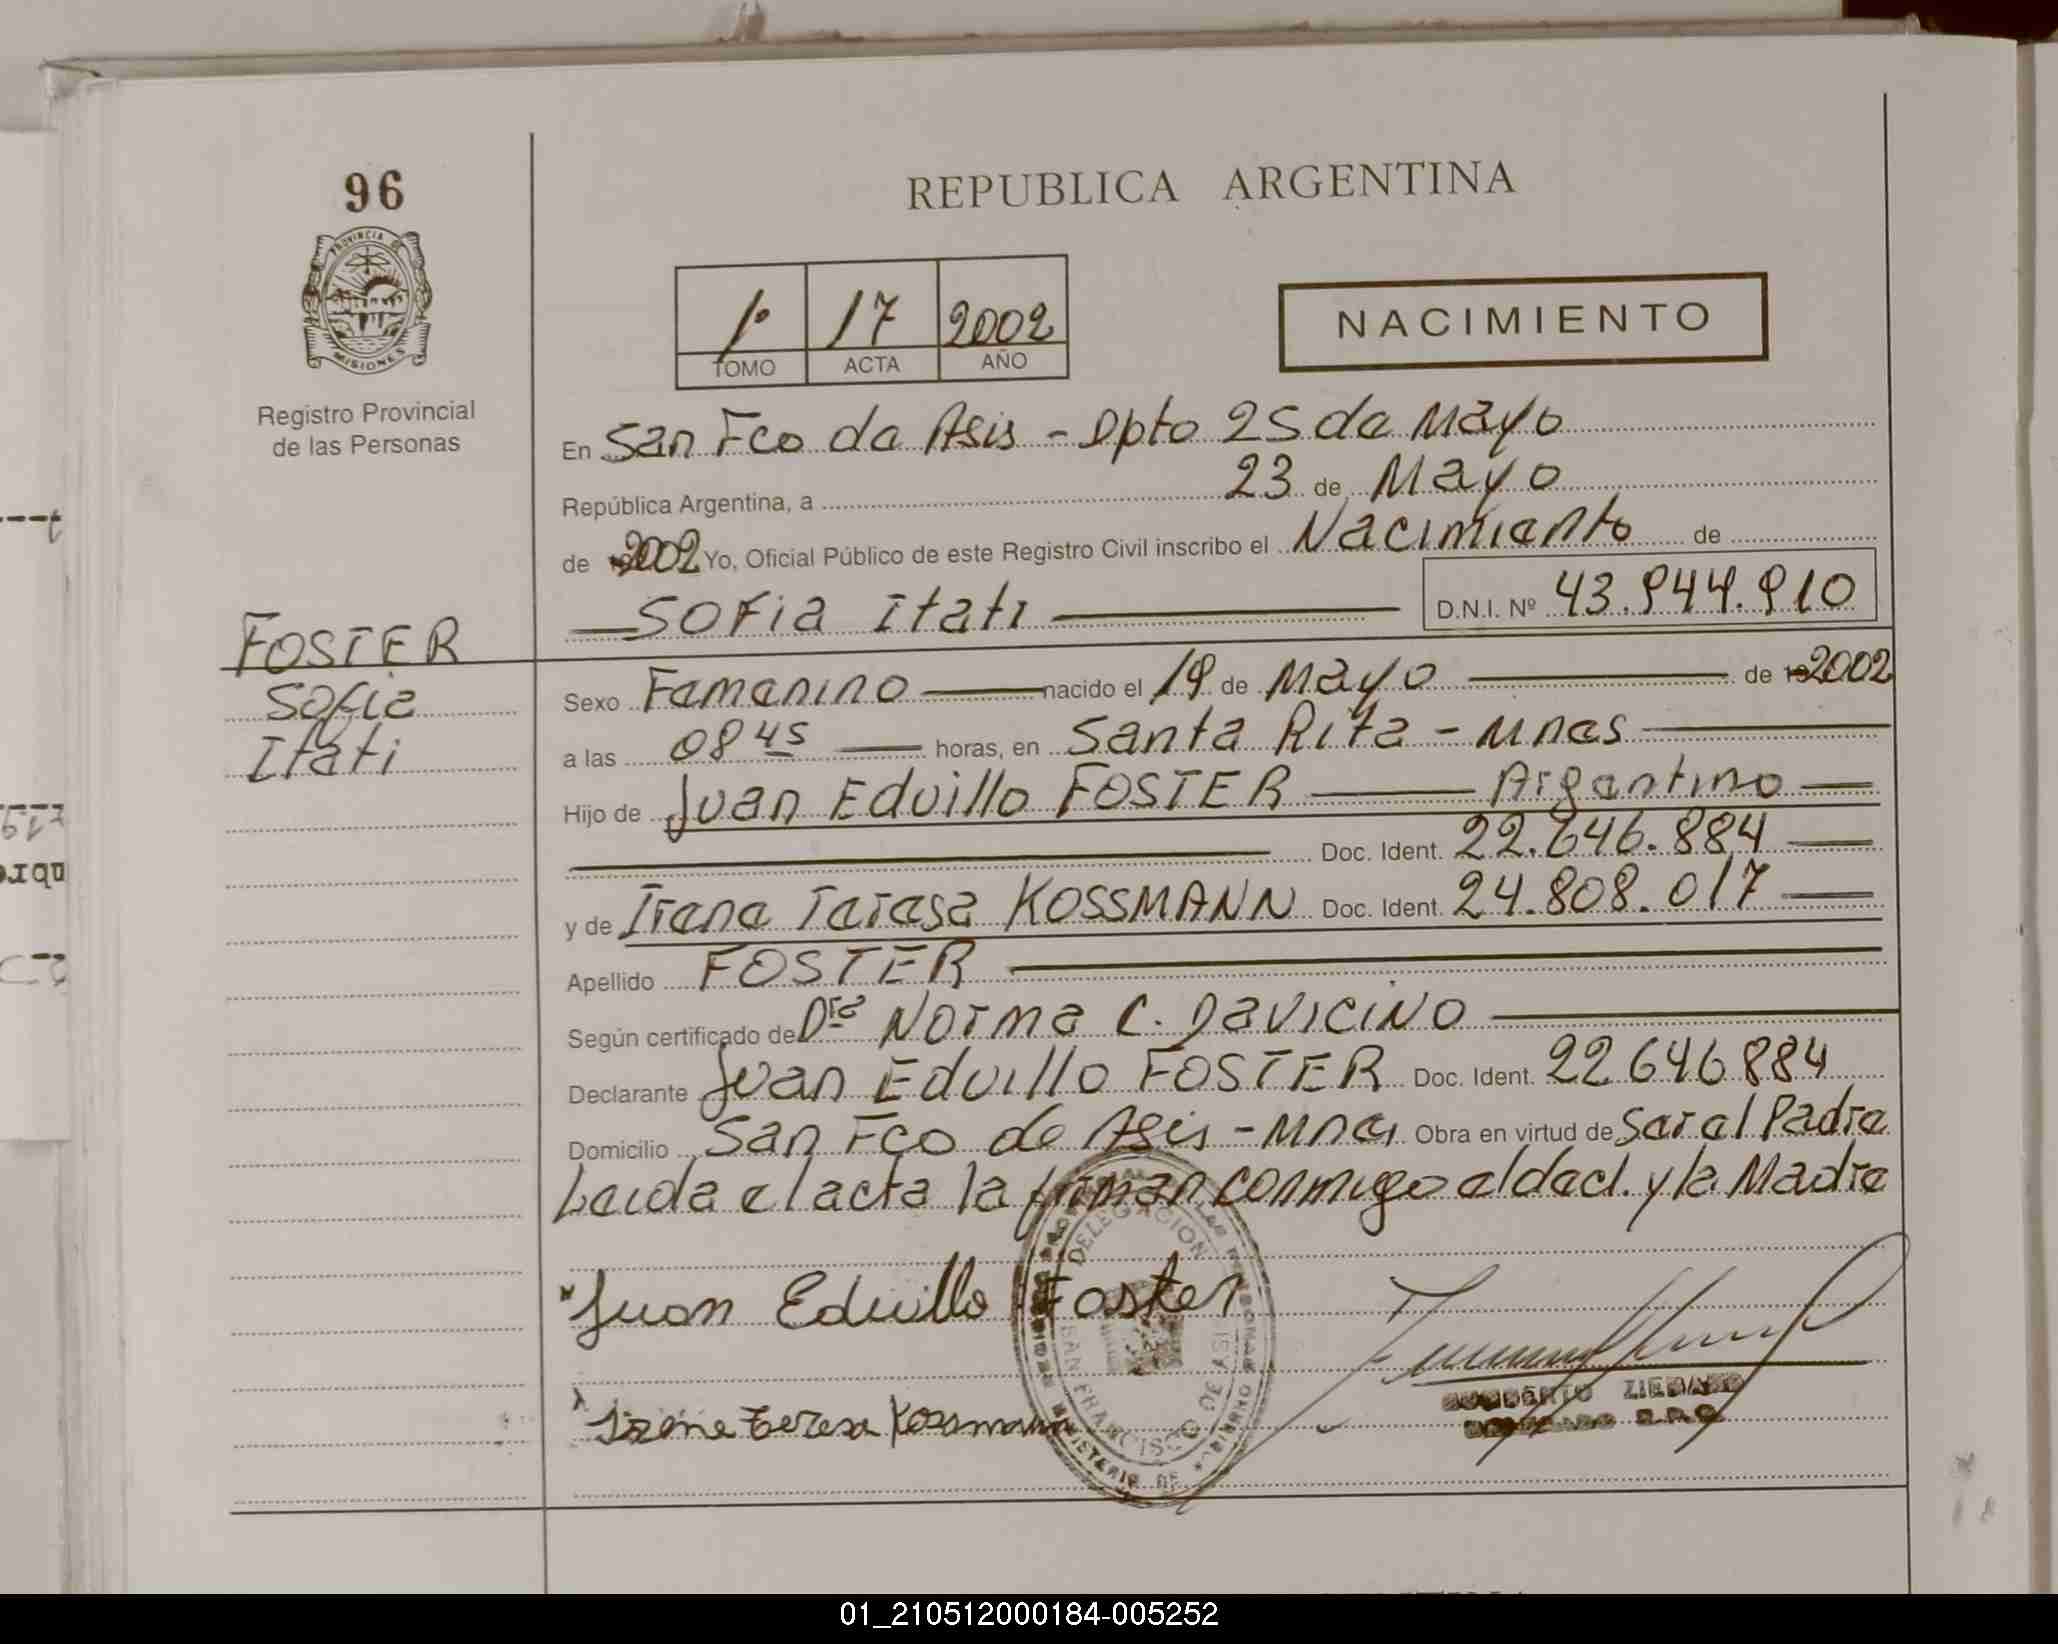 96
REPUBLICA ARGENTINA
PROVINCIA DE
MISIONES
Registro Provincial
de las Personas
1º 17 2002
TOMO ACTA AÑO
NACIMIENTO
En San Fco de Asis - Dpto 25 de Mayo
República Argentina, a 23 de Mayo
de 2002 Yo, Oficial Público de este Registro Civil inscribo el Nacimiento de
SOFIA Itati D.N.I. Nº 43.944.910
FOSTER
Sofia
Itati
Sexo Femenino nacido el 19 de Mayo de 2002
a las 08 45 horas, en Santa Rita - Mnes
Hijo de Juan Eduillo FOSTER Argentino
Doc. Ident. 22.646.884
y de Irene Teresa KOSSMANN Doc. Ident. 24.808.017
Apellido FOSTER
Según certificado de Dra NORMA C. DAVICINO
Declarante Juan Eduillo FOSTER Doc. Ident. 22646884
Domicilio San Fco de Asis - Mnes Obra en virtud de Ser el Padre
Leida el acta la firman conmigo el decl. y la Madre
Juan Eduillo Foster
Irene Teresa Kossmann
DELEGACION
SAN FRANCISCO DE ASIS
MINISTERIO DE
01_210512000184-005252